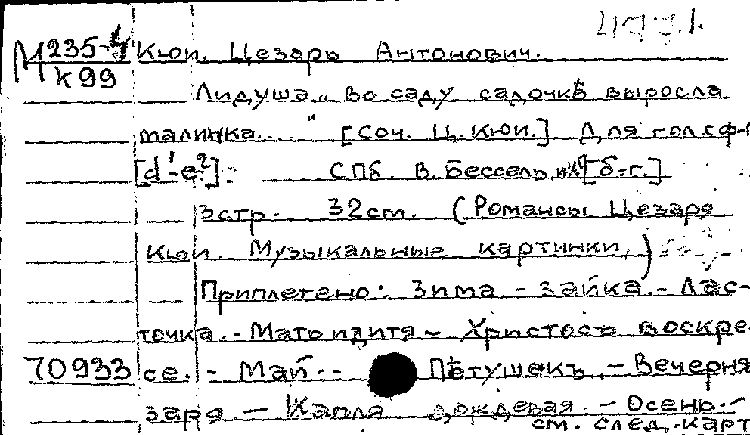 М 235-4 Кюи. Цезарь Антонович.
К 99
Лидуша „Во саду садочкѣ выросла
малинка...." [Соч. Ц. Кюи.] Для гол. с ф-
[d'-e²]. СПб В. Бессель и [б-г.]
3 стр. 32 cm. (Романсы Цезаря
Кюи. Музыкальные картинки,)
Приплетено: Зима - Зайка. - Лас-
точка. - Мать и дитя - Христосъ воскре
70933 се. - Май. - Пѣтушекъ. - Вечерня
заря - Капля дождевая. - Осень. -
см. след. карт